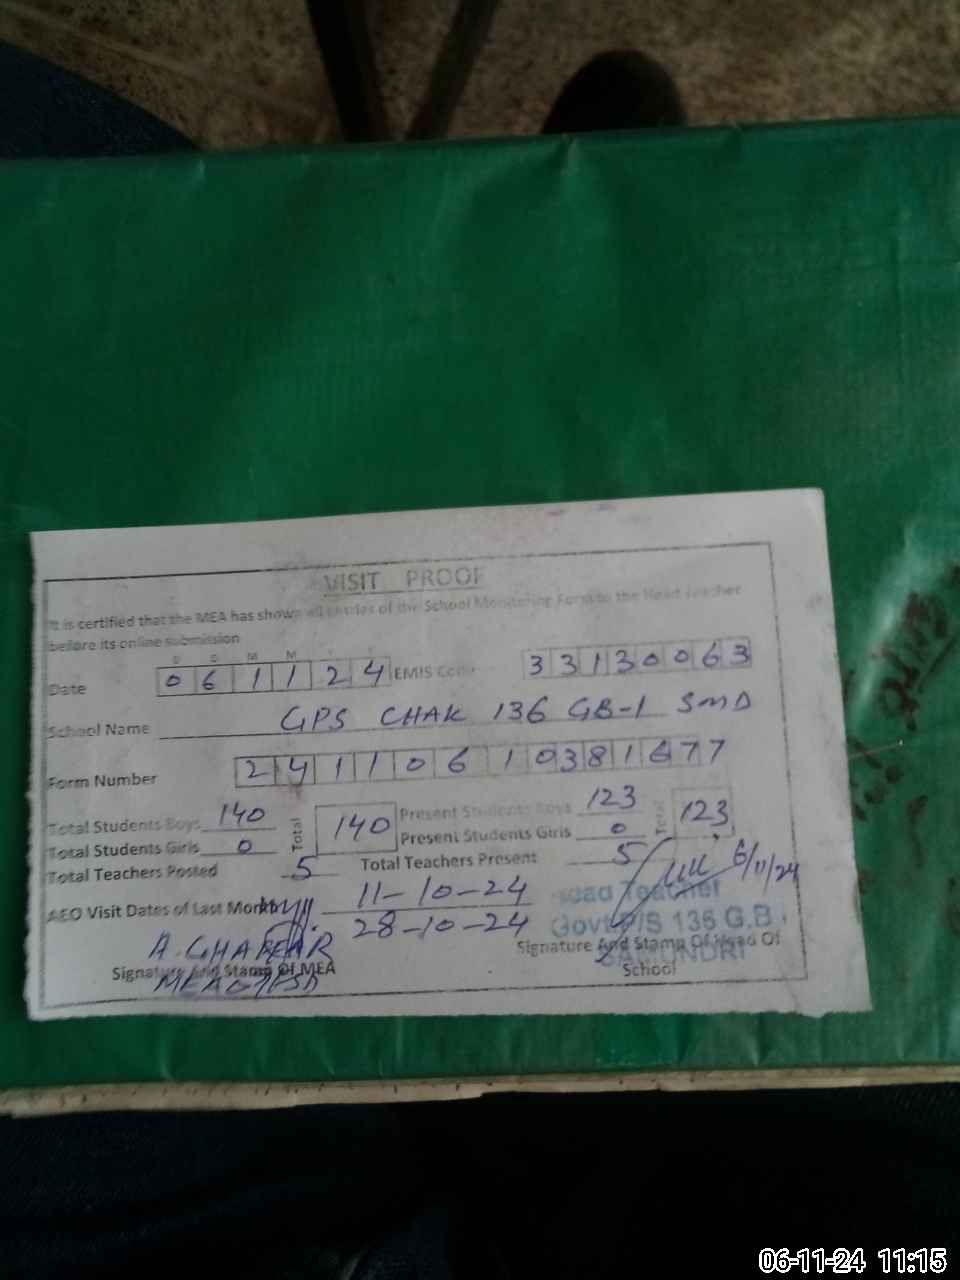 VISIT PROOF
It is certified that the MEA has shown all entries of the School Monitoring Form to the Head Teacher
before its online submission
D D M M Y Y
Date 0 6 1 1 2 4 EMIS Code 3 3 1 3 0 0 6 3
School Name GPS CHAK 136 GB-1 SMD
Form Number 2 4 1 1 0 6 1 0 3 8 1 6 7 7
Total Students Boys 140 Total 140 Present Students Boys 123 Total 123
Total Students Girls 0 Present Students Girls 0
Total Teachers Posted 5 Total Teachers Present 5
6/11/24
AEO Visit Dates of Last Month 11-10-24
28-10-24
Head Teacher
Govt. P/S 136 G.B.
SAMUNDRI
A. GHAFFAR
Signature And Stamp Of MEA
Signature And Stamp Of Head Of
School
06-11-24 11:15